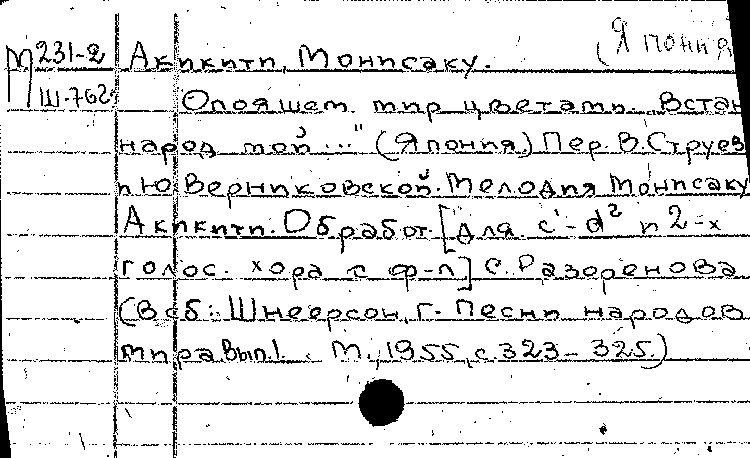 (Япония
М231-2 Акикити, Монисаку.
Ш-762 Опояшем мир цветами. "Встан
народ мой..." (Япония) Пер. В.Струев
и Ю.Верниковской. Мелодия Монисаку
Акикити. Обработ. [для c¹-d² и 2-х
голос. хора с ф-п] С. Разоренова
(В сб.: Шнеерсон, Г. Песни народов
мира Вып.1. М., 1955, с. 323-325.)